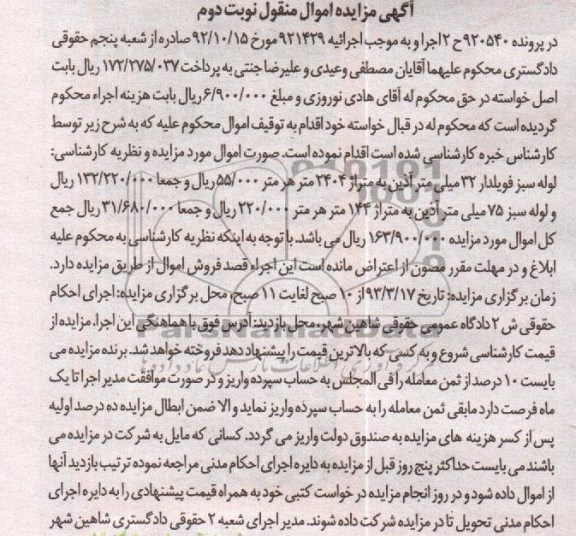 آگهی مزایده اموال منقول نوبت دوم
در پرونده ۹۲۰۵۴۰ ح ۲ اجرا و به موجب اجرائیه ۹۲۱۴۲۹ مورخ ۹۲/۱۰/۱۵ صادره از شعبه پنجم حقوقی
دادگستری محکوم علیهما آقایان مصطفی وعیدی و علیرضا جنتی به پرداخت ۱۷۲/۲۷۵/۰۳۷ ریال بابت
اصل خواسته در حق محکوم له آقای هادی نوروزی و مبلغ ۶/۹۰۰/۰۰۰ ریال بابت هزینه اجراء محکوم
گردیده است که محکوم له در قبال خواسته خود اقدام به توقیف اموال محکوم علیه که به شرح زیر توسط
کارشناس خبره کارشناسی شده است اقدام نموده است. صورت اموال مورد مزایده و نظریه کارشناسی:
لوله سبز فویلدار ۳۲ میلی متر آذین به متراژ ۲۴۰۴ متر هر متر ۵۵/۰۰۰ ریال و جمعا ۱۳۲/۲۲۰/۰۰۰ ریال
و لوله سبز ۷۵ میلی متر آذین به متراژ ۱۴۴ متر هر متر ۲۲۰/۰۰۰ ریال و جمعا ۳۱/۶۸۰/۰۰۰ ریال جمع
کل اموال مورد مزایده ۱۶۳/۹۰۰/۰۰۰ ریال می باشد. با توجه به اینکه نظریه کارشناسی به محکوم علیه
ابلاغ و در مهلت مقرر مصون از اعتراض مانده است این اجراء قصد فروش اموال از طریق مزایده دارد.
زمان برگزاری مزایده: تاریخ ۹۳/۳/۱۷ از ۱۰ صبح لغایت ۱۱ صبح، محل برگزاری مزایده: اجرای احکام
حقوقی ش ۲ دادگاه عمومی حقوقی شاهین شهر، محل بازدید: آدرس فوق با هماهنگی این اجرا. مزایده از
قیمت کارشناسی شروع و به کسی که بالاترین قیمت را پیشنهاد دهد فروخته خواهد شد. برنده مزایده می
بایست ۱۰ درصد از ثمن معامله را فی المجلس به حساب سپرده واریز و در صورت موافقت مدیر اجرا تا یک
ماه فرصت دارد مابقی ثمن معامله را به حساب سپرده واریز نماید و الا ضمن ابطال مزایده ده درصد اولیه
پس از کسر هزینه های مزایده به صندوق دولت واریز می گردد. کسانی که مایل به شرکت در مزایده می
باشند می بایست حداکثر پنج روز قبل از مزایده به دایره اجرای احکام مدنی مراجعه نموده ترتیب بازدید آنها
از اموال داده شود و در روز انجام مزایده در خواست کتبی خود به همراه قیمت پیشنهادی را به دایره اجرای
احکام مدنی تحویل تا در مزایده شرکت داده شوند. مدیر اجرای شعبه ۲ حقوقی دادگستری شاهین شهر
ParsNamadData